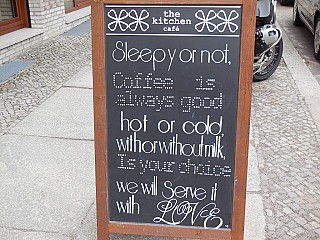 the
kitchen
café
Sleepy or not,
Coffee is
always good
hot or cold,
with or without milk,
Is your choice
we will Serve it
with LOVE